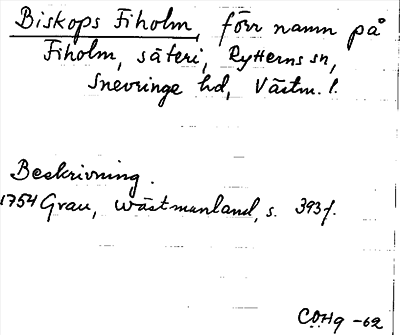 Biskops Fiholm, förr namn på
Fiholm, säteri, Rytterns sn,
Snevringe hd, Västm. l.
Beskrivning.
1754 Grau, Wästmanland, s. 393 f.
COHg -62